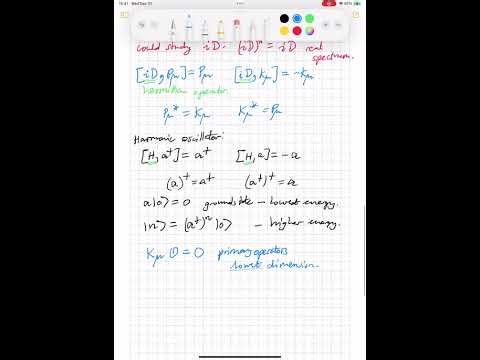 15:41 Wed Dec 20
85%
could study iD. (iD)* = iD real spectrum.
[iD, Pμ] = Pμ [iD, Kμ] = -Kμ
hermitian operator.
Pμ* = Kμ Kμ* = Pμ
Harmonic oscillator:
[H, a†] = a† [H, a] = -a
(a)† = a† (a†)† = a
a|0⟩ = 0 groundstate - lowest energy.
|n⟩ = (a†)ⁿ|0⟩ - higher energy.
Kμ O = 0 primary operators
lowest dimension.